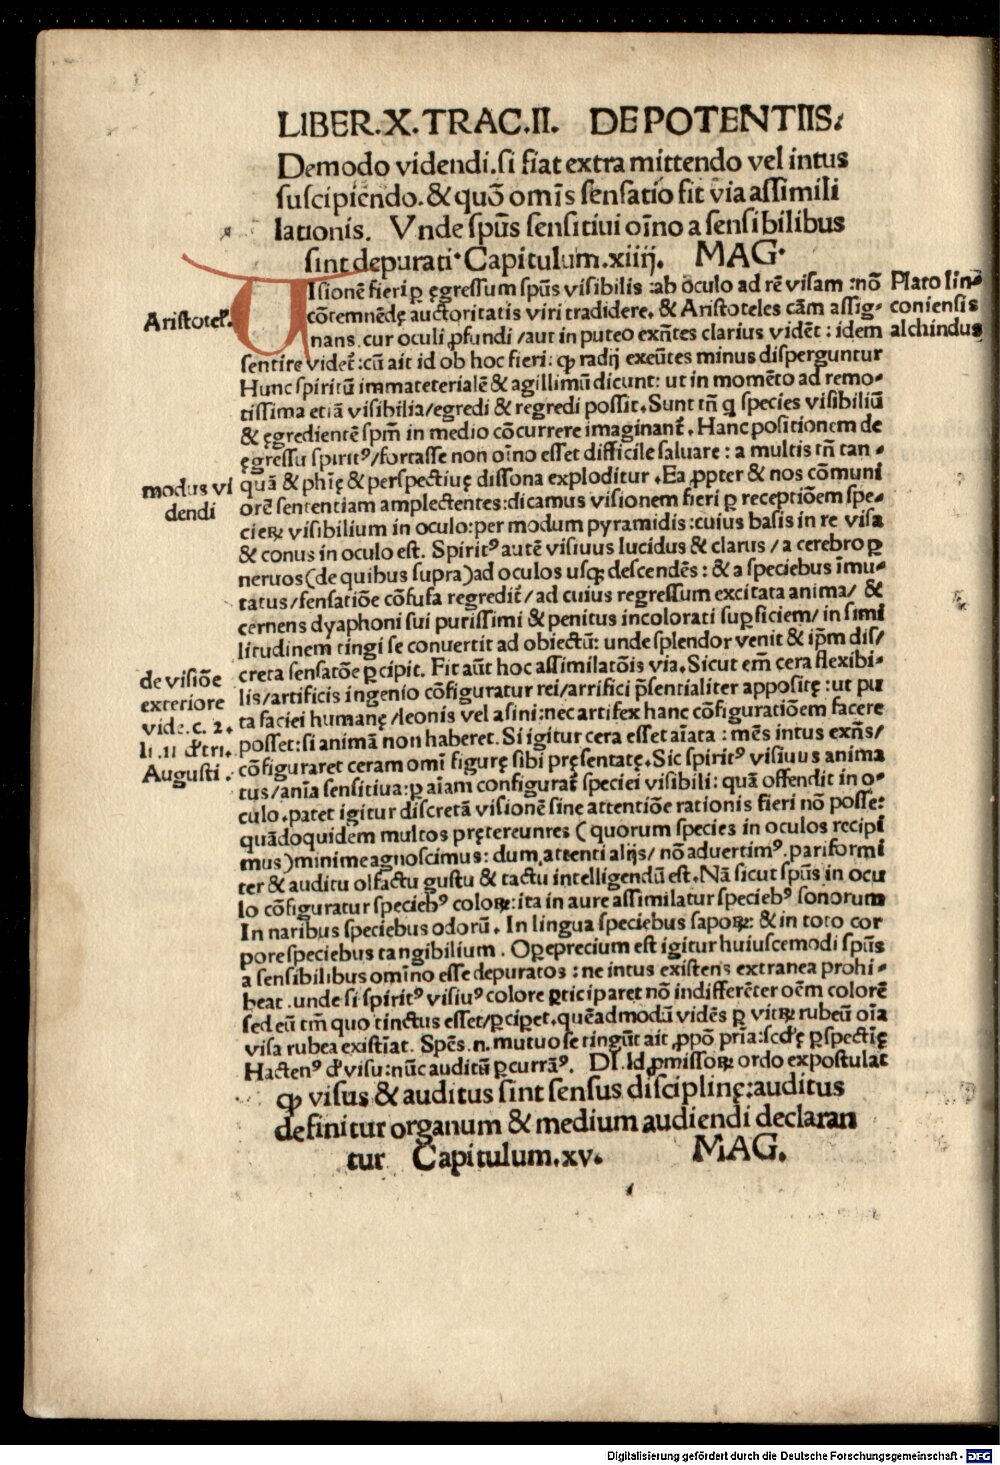 LIBER.X.TRAC.II. DE POTENTIIS:
De modo videndi.si fiat extra mittendo vel intus
suscipiendo.& quõ omĩs sensatio fit via assimili
lationis. Vnde spũs sensitiui oĩno a sensibilibus
sint depurati. Capitulum.xiiij. MAG.
VIsionẽ fieri ꝑ ęgressum spũs visibilis :ab oculo ad rẽ visam :nõ
cõtemnẽdę auctoritatis viri tradidere. & Aristoteles cãm assig-
nans. cur oculi ꝓfundi /aut in puteo exñtes clarius vidẽt : idem
sentire videt̃ :cũ ait id ob hoc fieri: ꝙ radij exeũtes minus disperguntur
Hunc spiritũ immateterialẽ & agillimũ dicunt: ut in momẽto ad remo-
tissima etiã visibilia/egredi & regredi possit. Sunt tñ q species visibiliũ
& ęgredientẽ spm̃ in medio cõcurrere imaginant̃. Hanc positionem de
ęgressu spiritꝰ/fortasse non oĩno esset difficile saluare : a multis tñ tan-
quã & phię & perspectiuę dissona exploditur. Ea ꝓpter & nos cõmuni
orẽ sententiam amplectentes:dicamus visionem fieri ꝑ receptiõem spe-
cieꝝ visibilium in oculo:per modum pyramidis :cuius basis in re visa
& conus in oculo est. Spiritꝰ autẽ visiuus lucidus & clarus /a cerebro ꝑ
neruos(de quibus supra)ad oculos usqꝫ descendẽs : & a speciebus ĩmu-
tatus/sensatiõe cõfusa regredit̃/ad cuius regressum excitata anima/ &
cernens dyaphoni sui purissimi & penitus incolorati suꝑficiem/in simi
litudinem tingi se conuertit ad obiectũ: unde splendor venit & ip̃m dis/
creta sensatõe ꝑcipit. Fit aũt hoc assimilatõis via. Sicut em̃ cera flexibi-
lis/artificis ingenio cõfiguratur rei/arrifici p̃sentialiter appositę :ut pu
ta faciei humanę/leonis vel asini:nec artifex hanc cõfiguratiõem facere
posset:si animã non haberet. Si igitur cera esset aĩata : mẽs intus exñs/
cõfiguraret ceram omĩ figurę sibi pręsentatę. Sic spiritꝰ visiuus anima
tus/anĩa sensitiua:ꝑ aĩam configurat̃ speciei visibili: quã offendit in o-
culo.patet igitur discretã visionẽ sine attentiõe rationis fieri nõ posse:
quãdoquidem multos pręterunres ( quorum species in oculos recipi
mus)minime agnoscimus: dum attenti alijs/ nõ advertimꝰ.pariformi
ter & auditu olfactu gustu & tactu intelligendũ est. Nã sicut spũs in ocu
lo cõfiguratur speciebꝰ coloꝝ:ita in aure assimilatur speciebꝰ sonorum
In naribus speciebus odorũ. In lingua speciebus sapoꝝ: & in toto cor
pore speciebus tangibilium. Oꝑeprecium est igitur huiuscemodi spũs
a sensibilibus omĩno esse depuratos : ne intus existens extranea prohi-
beat .unde si spiritꝰ visiuꝰ colore ꝑticiparet nõ indifferẽter oẽm colorẽ
sed eũ tm̃ quo tinctus esset/ꝑcipet.quẽadmodũ vidẽs ꝑ vitꝝ rubeũ oĩa
visa rubea existĩat. Spẽs.n.mutuo se tingũt ait ꝓpõ pria:scd'ę ꝑspectię
Hactenꝰ d' visu:nũc auditũ ꝑcurrãꝰ. DI. Id ꝓmissoꝝ ordo expostulat
ꝙ visus & auditus sint sensus disciplinę:auditus
definitur organum & medium audiendi declaran
tur Capitulum.xv. MAG.
Aristotel̃.
Plato lin
coniensis
alchindus
modus vi
dendi
de visiõe
exteriore
vide.c. 2.
li.11 d'tri.
Augusti.
Digitalisierung gefördert durch die Deutsche Forschungsgemeinschaft - DFG